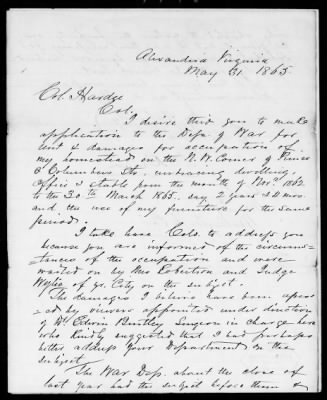 Alexandria Virginia
May 31 1865
Col. Hardge
Col,
I desire thro you to make
application to the Dept of War for
rent & damages for occupation of
my homestead on the N.W. Corner of Prince
& Columbus Sts. embracing dwelling,
office & stable from the month of Novr 1862
to the 30th March 1865, say 2 years & 4 mos.
and the use of my furniture for the same
period.
I take leave Colo. to address you
because you are informed of the circums-
tances of the occupation and were
waited on by Mrs Robertson and Judge
Wylie of yr. City on the subject.
The damages I believe have been assess
ed by viewers appointed under direction
of Dr Edwin Bentley Surgeon in charge here
who kindly suggested that I had perhaps
better address Your Department on the
subject.
The War Dep. about the close of
last year had the subject before them &